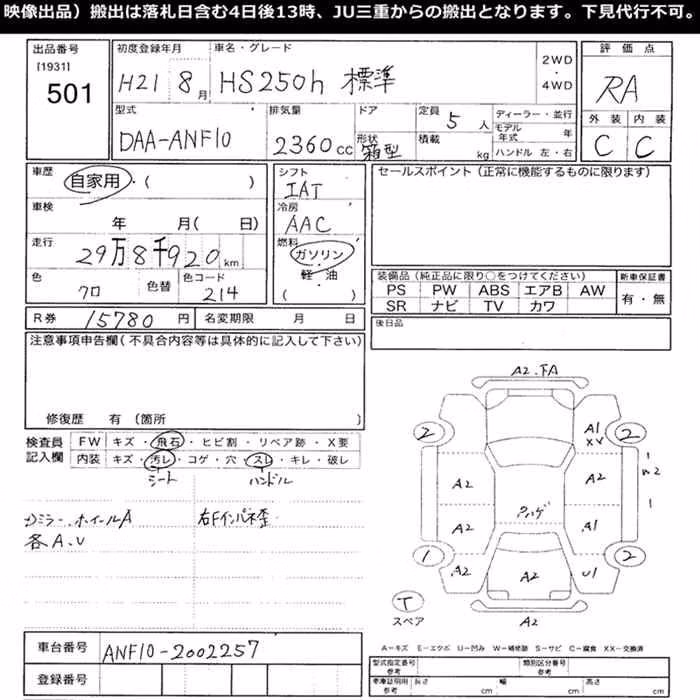 映像出品）搬出は落札日含む4日後13時、JU三重からの搬出となります。下見代行不可。
出品番号
[1931]
501
初度登録年月
H21 8月
車名・グレード
HS250h 標準
2WD
・
4WD
評価点
RA
外装 内装
C C
型式
DAA-ANF10
排気量
2360cc
ドア
形状
箱型
定員 5人
積載 kg
ディーラー・並行
モデル年式 年
ハンドル 左・右
車歴
自家用・( )
車検
年 月( 日)
走行
29万8千920km
色
クロ
色替
色コード
214
シフト
IAT
冷房
AAC
燃料
ガソリン
軽・油
( )
セールスポイント（正常に機能するものに限ります）
装備品（純正品に限り○をつけてください）
PS PW ABS エアB AW
SR ナビ TV カワ
新車保証書
有・無
R券 15780円
名変期限 月 日
後日品
注意事項申告欄（不具合内容等は具体的に記入して下さい）
修復歴 有（箇所
検査員
記入欄
FW キズ・飛石・ヒビ割・リペア跡・X要
内装 キズ・汚レ・コゲ・穴・スレ・キレ・破レ
シート ハンドル
カミラー、ホイールA
各A.U
右Fインパネ歪
A2.FA
2
A1
XV
2
A2
A2
1
m2
1
A2
クハゲ
A1
1
2
A2
A2
U1
T
スペア
A2
A−キズ E−エクボ U−凹み W−補修跡 S−サビ C−腐食 XX−交換済
車台番号
ANF10-2002257
登録番号
型式指定番号
参考
類別区分番号
参考
車庫証明用
参考
長さ cm
幅 cm
高さ cm